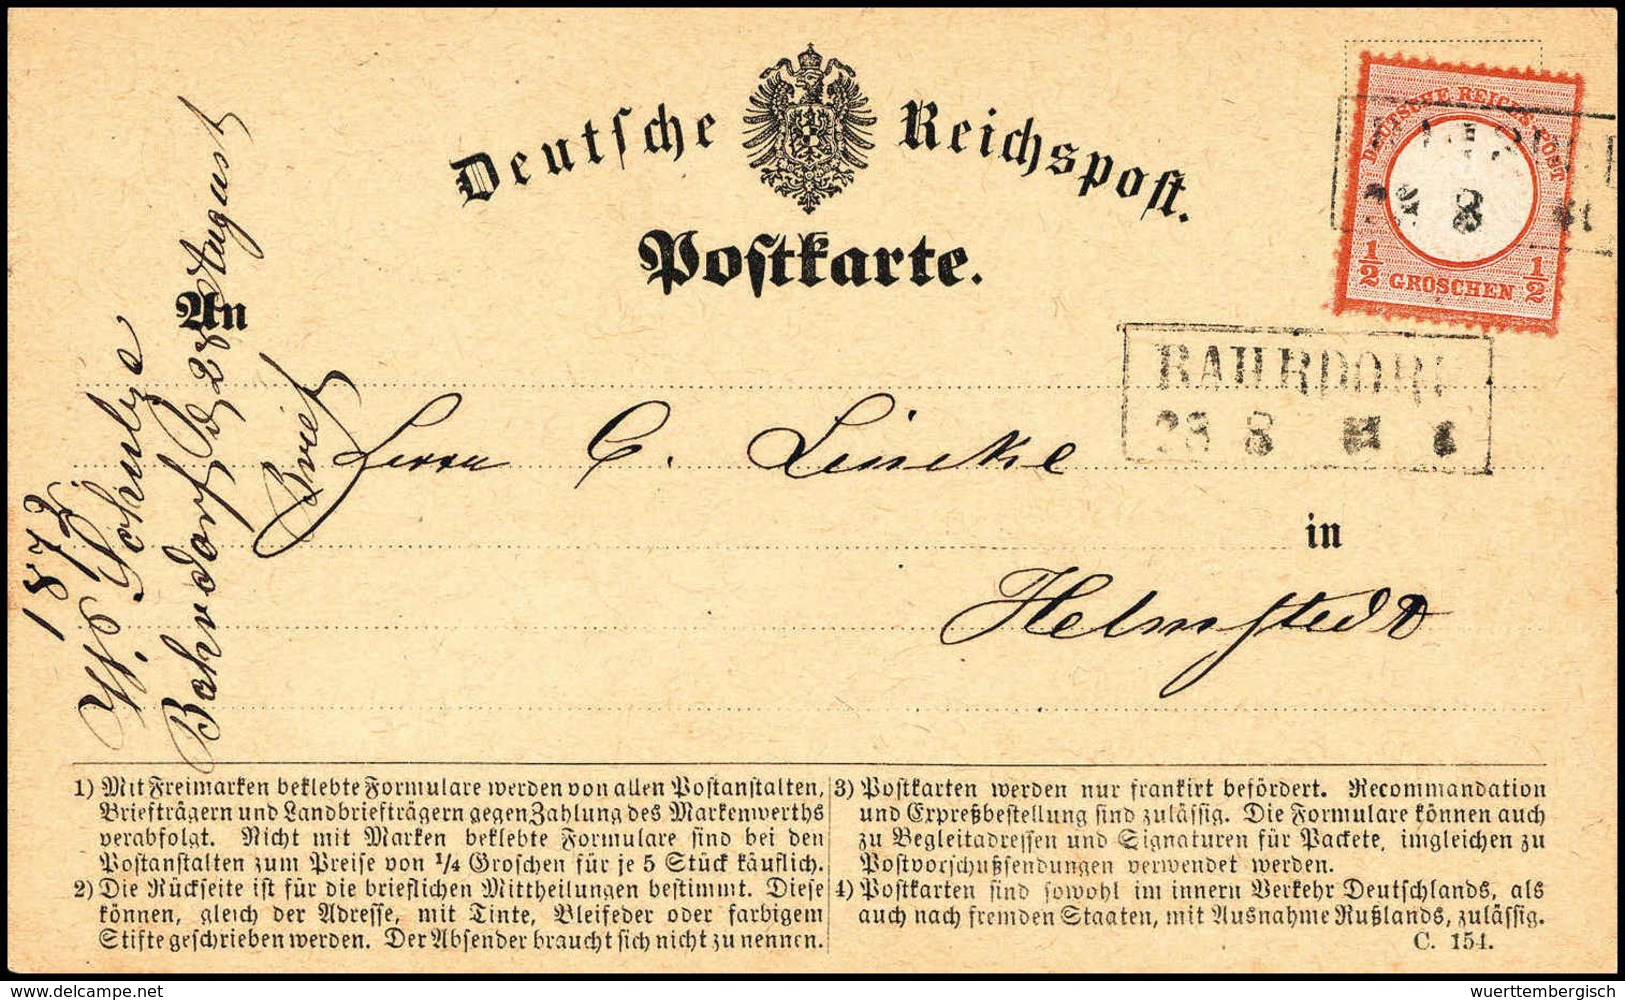 Deutsche Reichspost.
Postkarte.
DEUTSCHE REICHS-POST
½ GROSCHEN ½
8
BAHRDORF
28 8
An
Herrn C. Lincke
in
Helmstedt
1872
W. Schulze
Bahrdorf, d. 28 August
Brief
1) Mit Freimarken beklebte Formulare werden von allen Postanstalten,
Briefträgern und Landbriefträgern gegen Zahlung des Markenwerths
verabfolgt. Nicht mit Marken beklebte Formulare sind bei den
Postanstalten zum Preise von 1/4 Groschen für je 5 Stück käuflich.
2) Die Rückseite ist für die brieflichen Mittheilungen bestimmt. Diese
können, gleich der Adresse, mit Tinte, Bleifeder oder farbigem
Stifte geschrieben werden. Der Absender braucht sich nicht zu nennen.
3) Postkarten werden nur frankirt befördert. Recommandation
und Expreßbestellung sind zulässig. Die Formulare können auch
zu Begleitadressen und Signaturen für Packete, imgleichen zu
Postvorschußsendungen verwendet werden.
4) Postkarten sind sowohl im innern Verkehr Deutschlands, als
auch nach fremden Staaten, mit Ausnahme Rußlands, zulässig.
C. 154.
(c) delcampe.net
wuerttembergisch